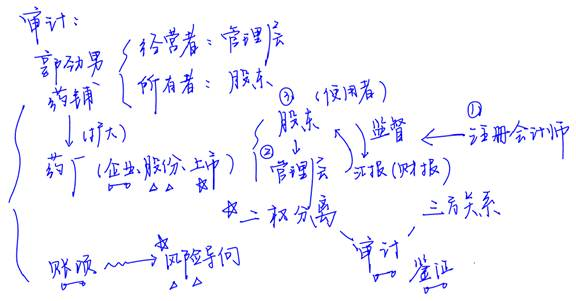 审计：
郭劲男
药铺
经营者：管理层
所有者：股东
↓(扩大)
药厂 (企业、股份、上市)
③ (使用者)
股东
↓
② 管理层
监督
汇报(财报)
① 注册会计师
☆二权分离
三方关系
审计
鉴证
账项 → 风险导向